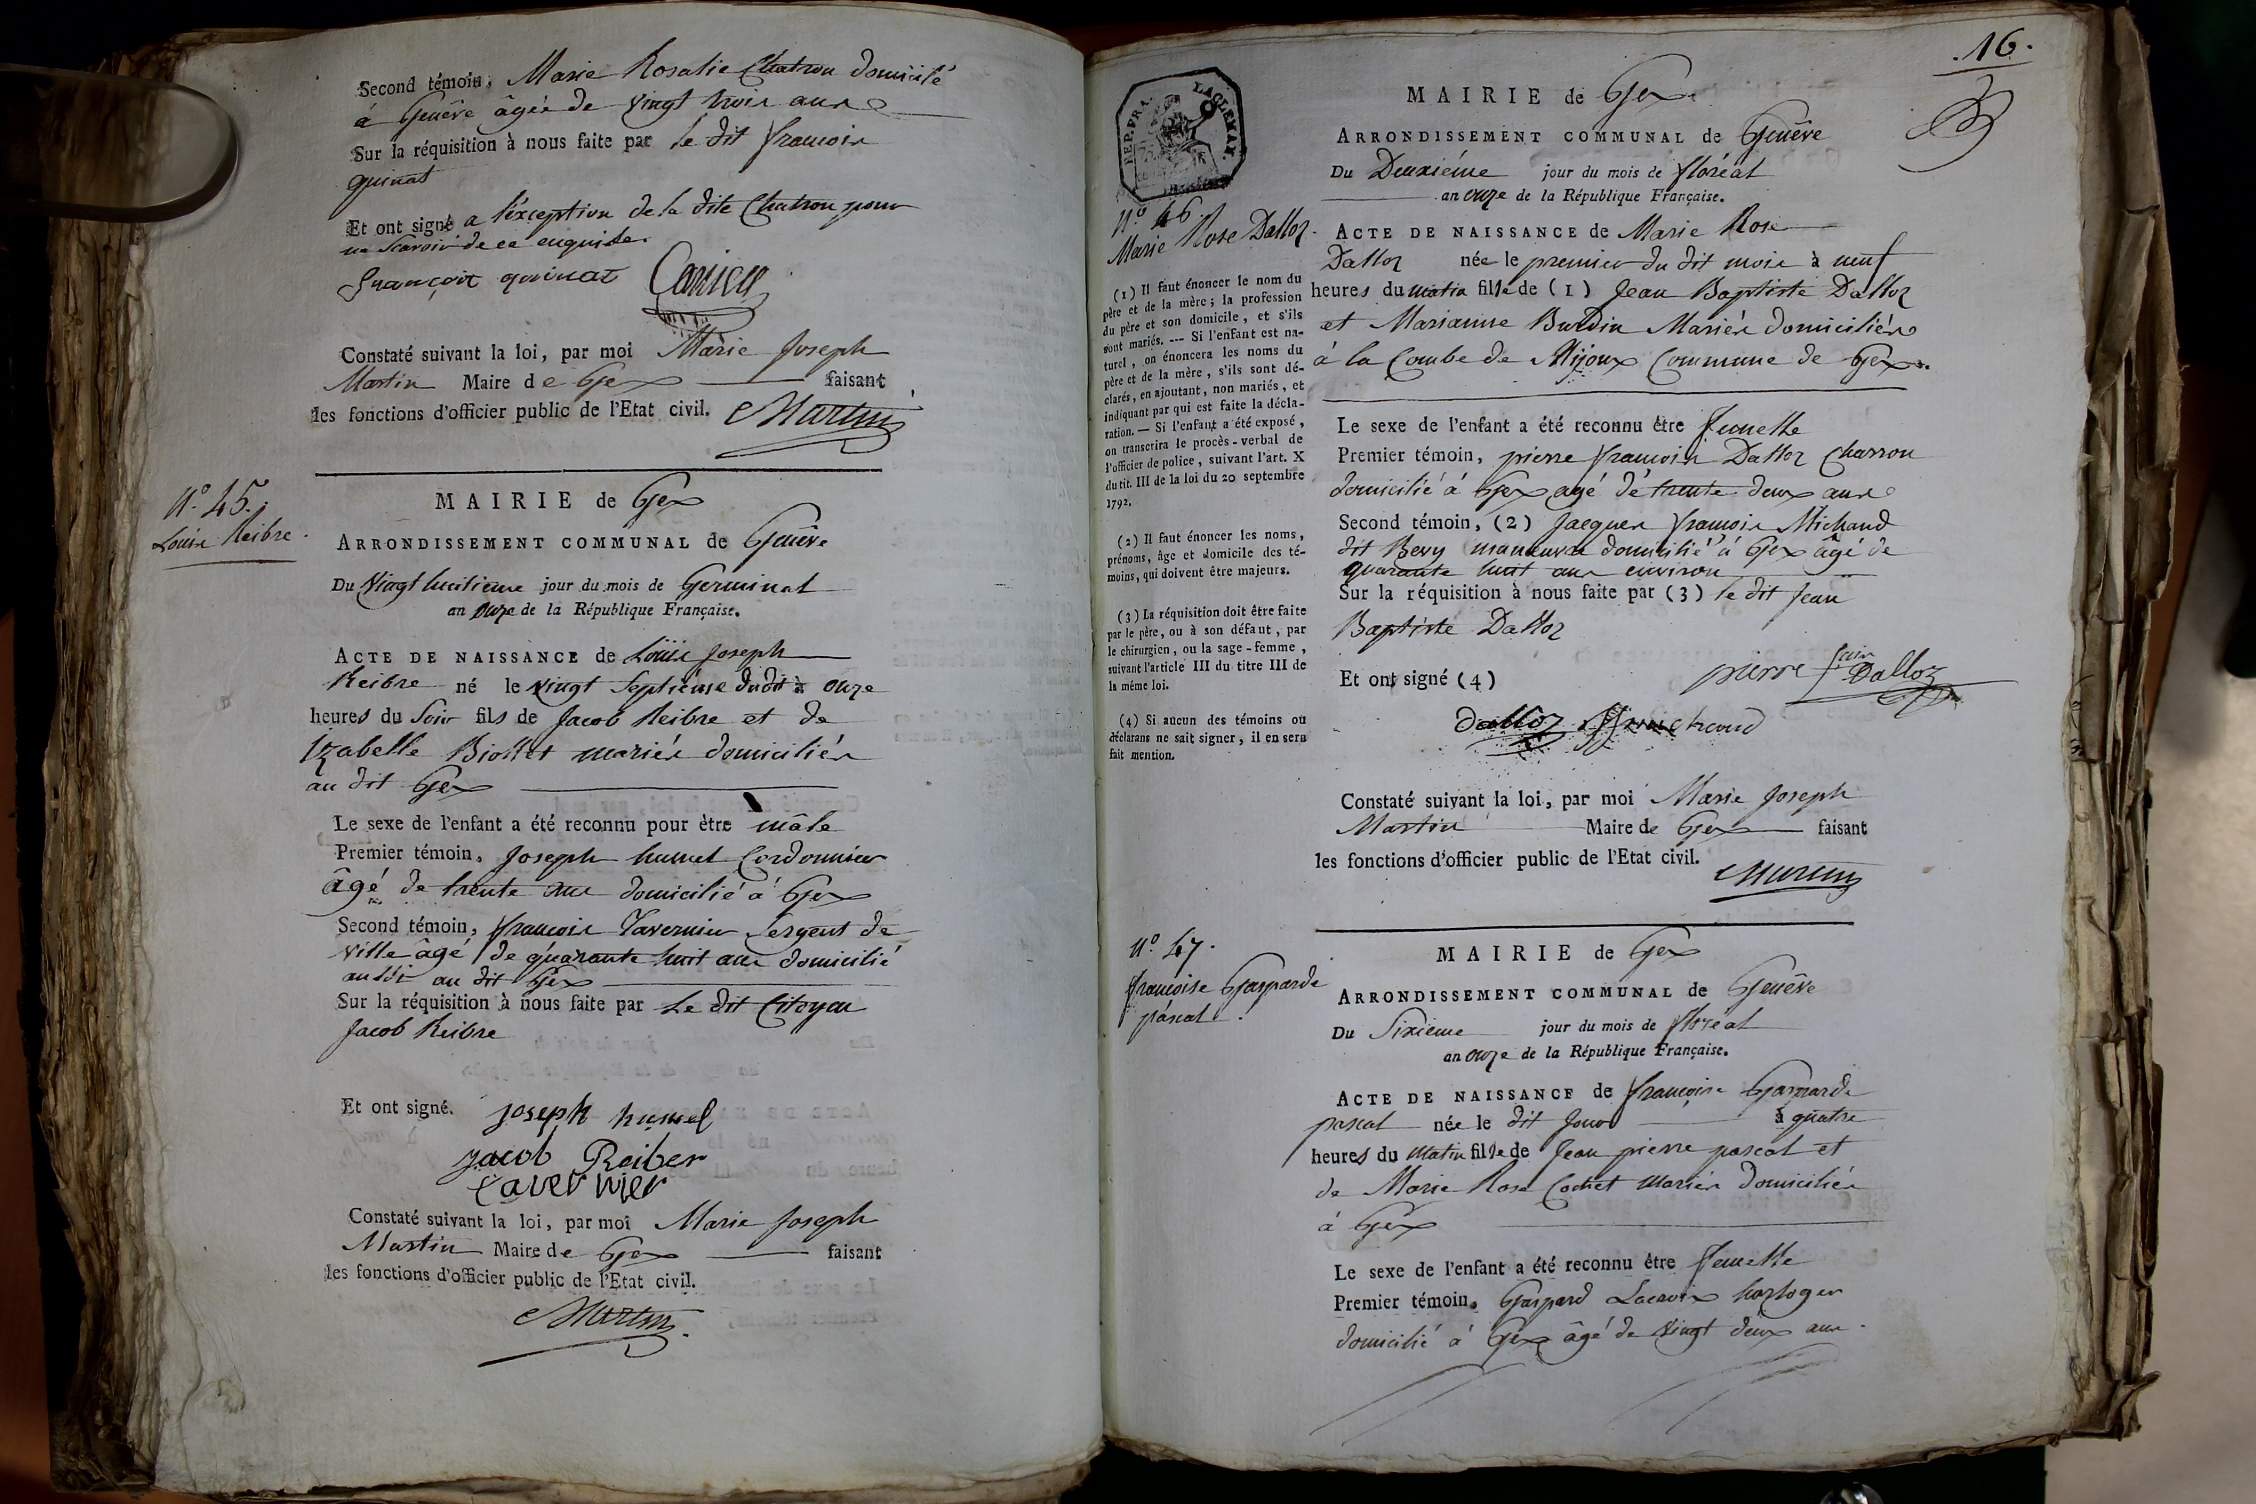 Second témoin, Marie Rosalie Chatron domicilé
á Genêve âgée de vingt trois ans
Sur la réquisition à nous faite par le dit françois
quinat
Et ont signé a l'éxception de la dite Chatron pour
ne scavoir de ce enquise.
françoit quinat
Constaté suivant la loi, par moi Marie Joseph
Martin Maire de Gex faisant
les fonctions d'officier public de l'Etat civil. Martin
N.º 45.
Louis Reibre.
MAIRIE de Gex
ARRONDISSEMENT COMMUNAL de Genêve
Du Vingt huitieme jour du mois de Germinal
an onze de la République Française.
ACTE DE NAISSANCE de Louis Joseph
Reibre né le vingt Septiéme du dit à onze
heures du Soir fils de Jacob Reibre et de
Izabelle mariés domiciliés
au dit Gex
Le sexe de l'enfant a été reconnu pour ètre mâle
Premier témoin, Joseph humel Cordonnier
âgé de trente ans domicilié á Gex
Second témoin, françois Tavernier Sergent de
Ville âgé de quarante huit ans domicilié
aussi au dit Gex
Sur la réquisition à nous faite par Le dit Citoyen
Jacob Reibre
Et ont signé. Joseph humel
jacob Reiber
tavernier
Constaté suivant la loi, par moi Marie Joseph
Martin Maire de Gex faisant
les fonctions d'officier public de l'Etat civil.
Martin
16.
REP. FRA. LAGLEMAN.
N.º 46.
Marie Rose Dalloz.
(1) Il faut énoncer le nom du
père et de la mère; la profession
du père et son domicile, et s'ils
sont mariés. --- Si l'enfant est na-
turel, on énoncera les noms du
père et de la mère, s'ils sont dé-
clarés, en ajoutant, non mariés, et
indiquant par qui est faite la décla-
ration. — Si l'enfant a été exposé,
on transcrira le procès-verbal de
l'officier de police, suivant l'art. X
du tit. III de la loi du 20 septembre
1792.
(2) Il faut énoncer les noms,
prénoms, âge et domicile des té-
moins, qui doivent être majeurs.
(3) La réquisition doit être faite
par le père, ou à son défaut, par
le chirurgien, ou la sage-femme,
suivant l'article III du titre III de
la même loi.
(4) Si aucun des témoins ou
déclarans ne sait signer, il en sera
fait mention.
MAIRIE de Gex
ARRONDISSEMENT COMMUNAL de Genêve
Du Deuxiéme jour du mois de floréal
an onze de la République Française.
ACTE DE NAISSANCE de Marie Rose
Dalloz née le premier du dit mois à neuf
heures du matin fille de (1) Jean Baptiste Dalloz
et Marianne Burdin Mariés domiciliés
á la Combe de Mijoux Commune de Gex.
Le sexe de l'enfant a été reconnu être femelle
Premier témoin, pierre françois Dalloz Charron
domicilié á Gex agé de trente deux ans
Second témoin, (2) Jacques françois Michaud
dit Bevy domicilié á Gex âgé de
quarante huit ans environ
Sur la réquisition à nous faite par (3) le dit Jean
Baptiste Dalloz
Et ont signé (4) pierre fcois Dalloz
dalloz
Constaté suivant la loi, par moi Marie Joseph
Martin Maire de Gex faisant
les fonctions d'officier public de l'Etat civil.
Martin
N.º 47.
françoise Gasparde
páscal.
MAIRIE de Gex
ARRONDISSEMENT COMMUNAL de Genêve
Du Sixieme jour du mois de floréal
an onze de la République Française.
ACTE DE NAISSANCE de françoise Gasparde
pascal née le dit Jour à quatre
heures du matin fille de Jean pierre pascal et
de Marie Rose Cochet mariés domiciliés
á Gex
Le sexe de l'enfant a été reconnu être femelle
Premier témoin, Gaspard Lacroix horloger
domicilié á Gex âgé de vingt deux ans.